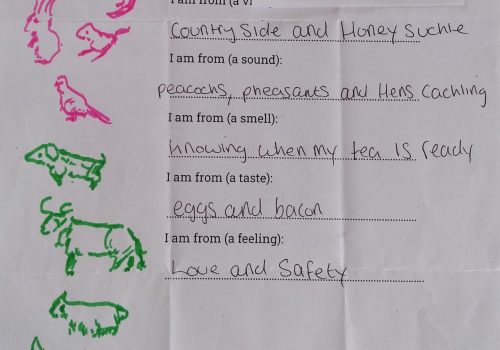 I am from (a vi
Country Side and Honey Suckle
I am from (a sound):
peacocks, pheasants and Hens Cackling
I am from (a smell):
Knowing when my tea is ready
I am from (a taste):
eggs and bacon
I am from (a feeling):
Love and Safety